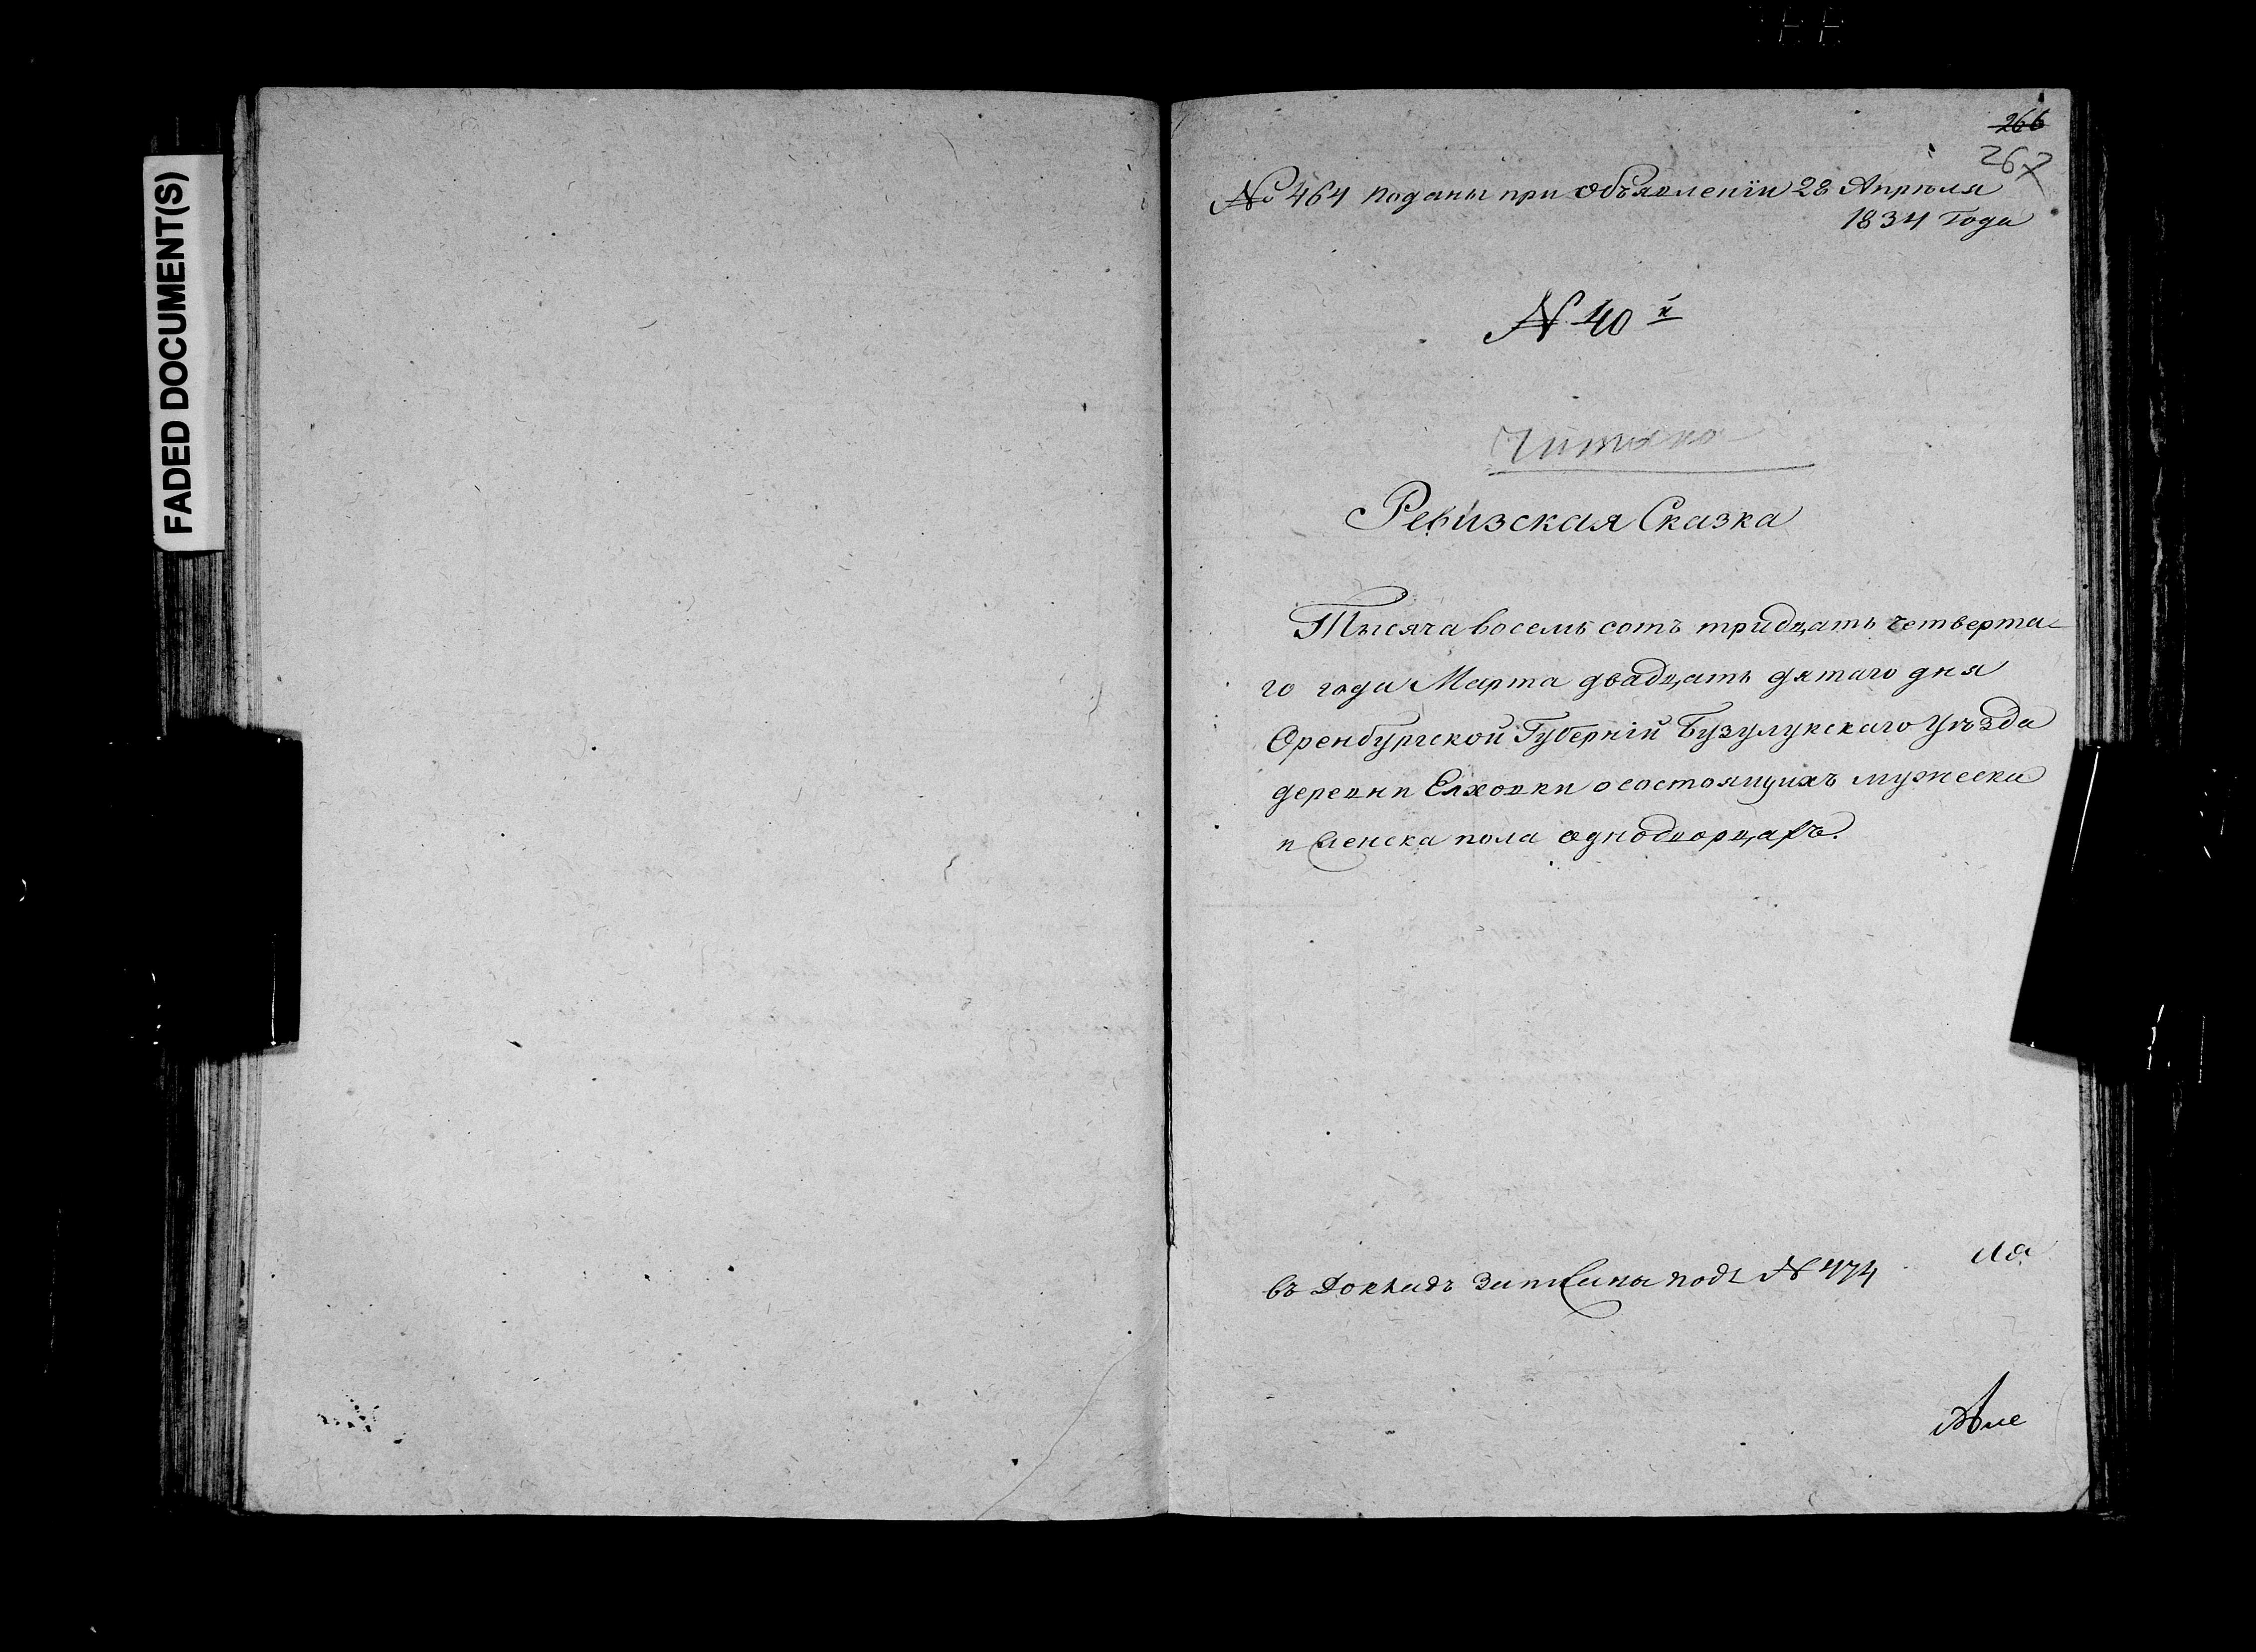 FADED DOCUMENT(S)
266
267
№ 464 поданы при объявленіи 28 Апрѣля
1834 Года
N 40 й
Читано
Ревизская Сказка
Тысяча восемь сотъ тридцать четверта-
го года Марта двадцать дятаго дня
Оренбургской Губерніи Бузулукскаго Уѣзда
деревни Елховки о состоящихъ мужеска
и женска пола однодворцахъ.
ла
въ Докладъ записаны подъ N 474
Але